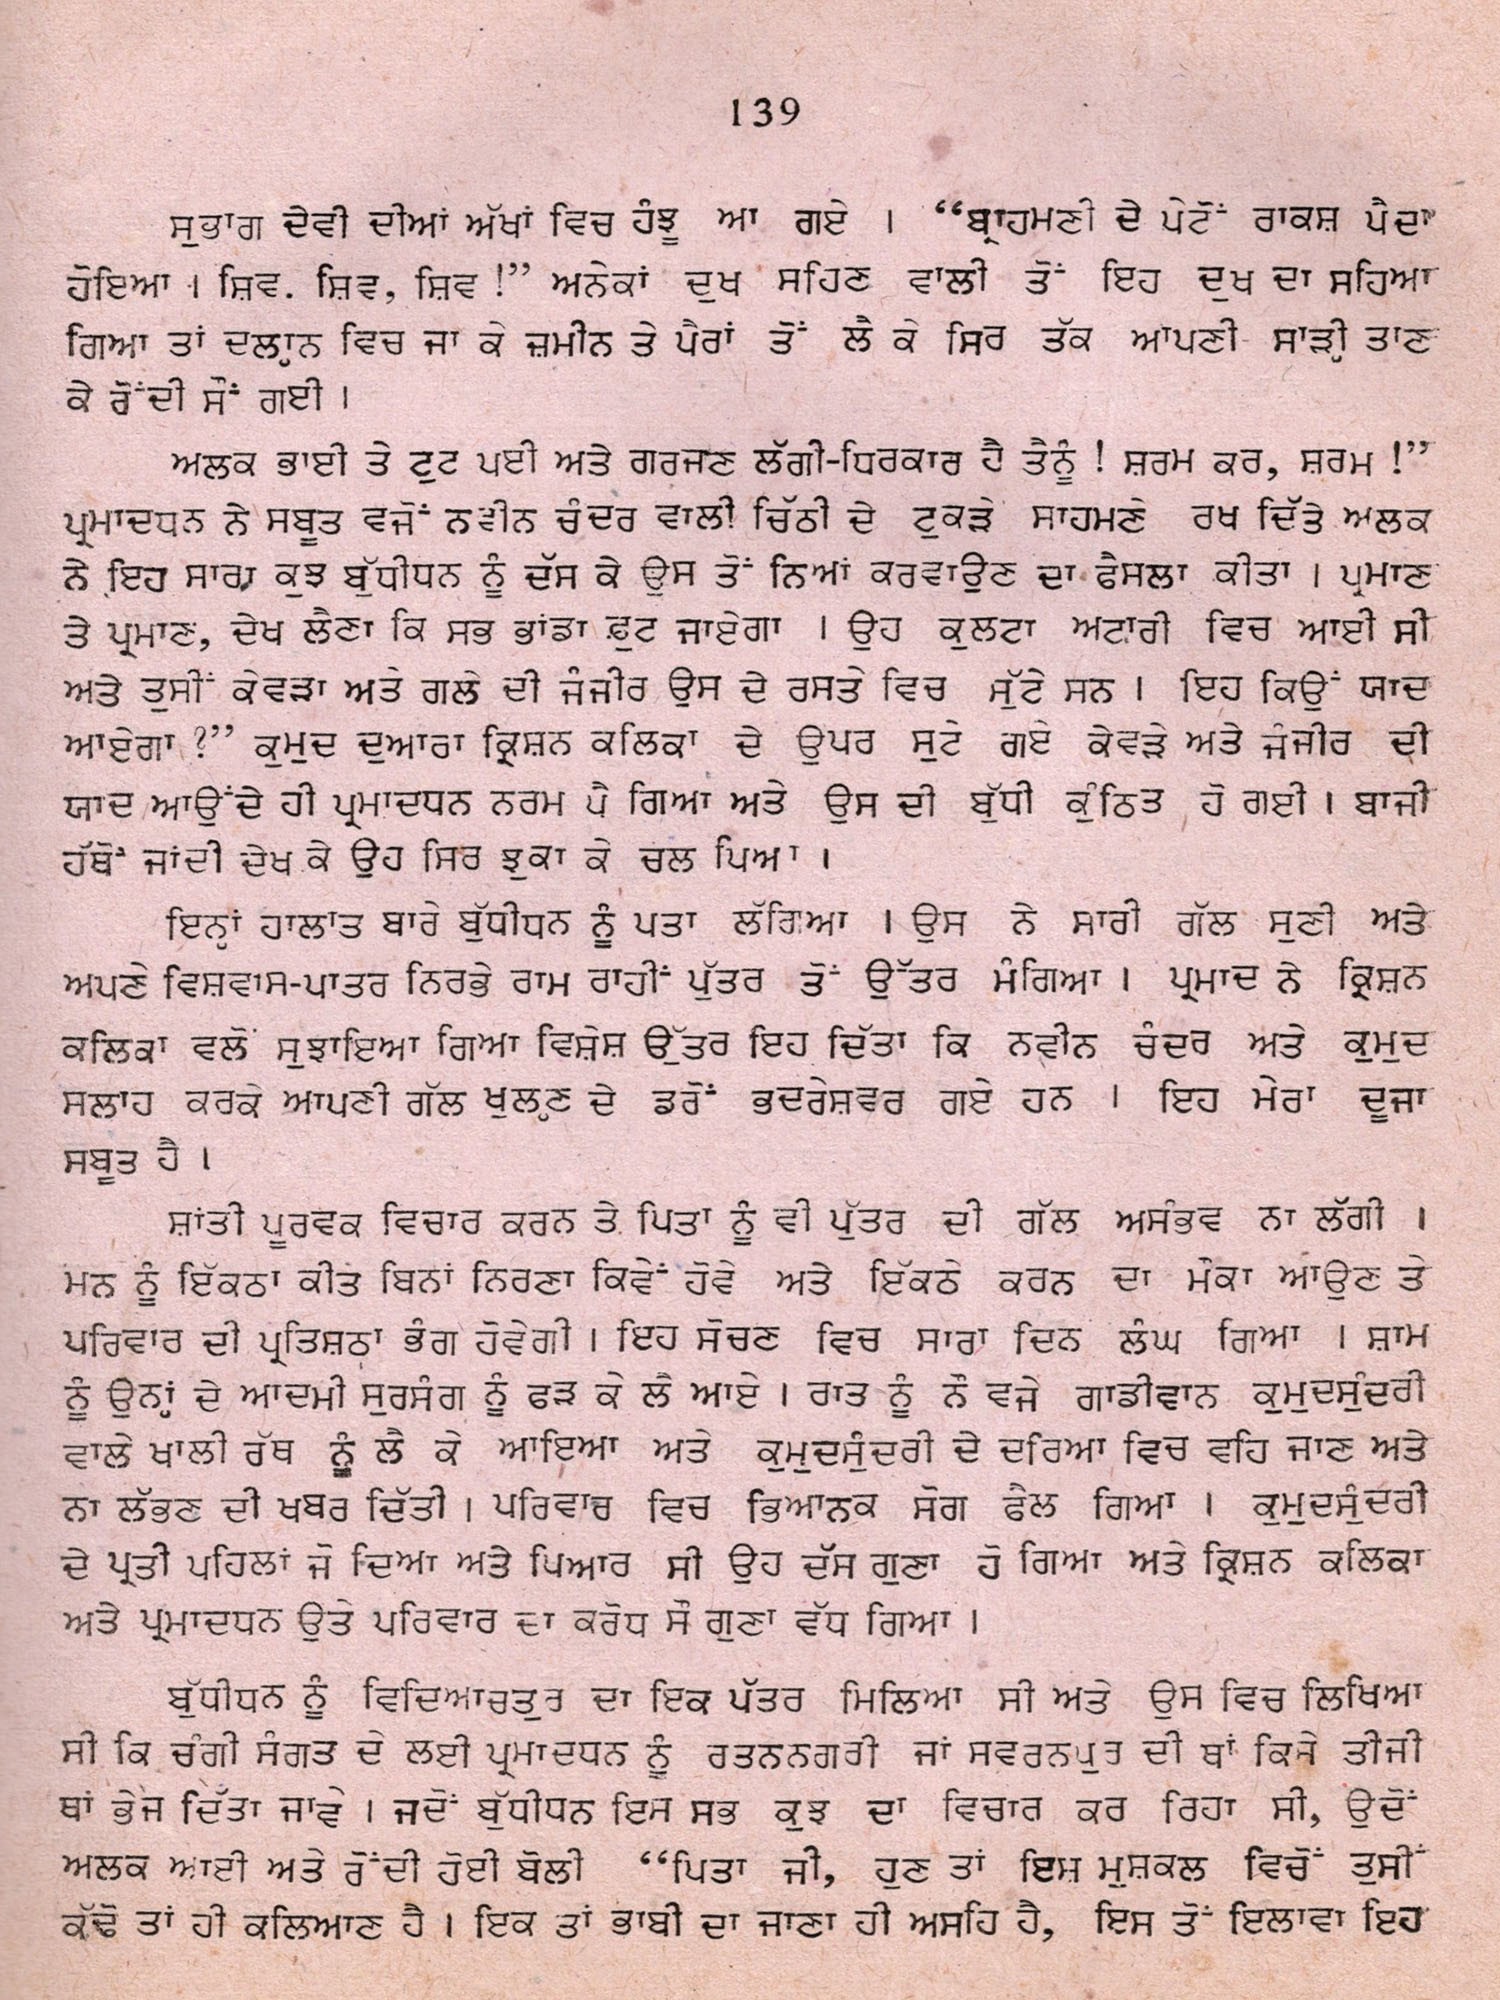 139
ਸੁਭਾਗ ਦੇਵੀ ਦੀਆਂ ਅੱਖਾਂ ਵਿਚ ਹੰਝੂ ਆ ਗਏ । “ਬ੍ਰਾਹਮਣੀ ਦੇ ਪੇਟੋਂ ਰਾਕਸ਼ ਪੈਦਾ
ਹੋਇਆ । ਸ਼ਿਵ. ਸ਼ਿਵ, ਸ਼ਿਵ !” ਅਨੇਕਾਂ ਦੁਖ ਸਹਿਣ ਵਾਲੀ ਤੋਂ ਇਹ ਦੁਖ ਦਾ ਸਹਿਆ
ਗਿਆ ਤਾਂ ਦਲਾਨ ਵਿਚ ਜਾ ਕੇ ਜ਼ਮੀਨ ਤੇ ਪੈਰਾਂ ਤੋਂ ਲੈ ਕੇ ਸਿਰ ਤੱਕ ਆਪਣੀ ਸਾੜ੍ਹੀ ਤਾਣ
ਕੇ ਰੋਂਦੀ ਸੌਂ ਗਈ ।
ਅਲਕ ਭਾਈ ਤੇ ਟੁਟ ਪਈ ਅਤੇ ਗਰਜਣ ਲੱਗੀ-ਧਿਰਕਾਰ ਹੈ ਤੈਨੂੰ ! ਸ਼ਰਮ ਕਰ, ਸ਼ਰਮ !”
ਪ੍ਰਮਾਦਧਨ ਨੇ ਸਬੂਤ ਵਜੋਂ ਨਵੀਨ ਚੰਦਰ ਵਾਲੀ ਚਿੱਠੀ ਦੇ ਟੁਕੜੇ ਸਾਹਮਣੇ ਰਖ ਦਿੱਤੇ ਅਲਕ
ਨੇ ਇਹ ਸਾਰਾ ਕੁਝ ਬੁੱਧੀਧਨ ਨੂੰ ਦੱਸ ਕੇ ਉਸ ਤੋਂ ਨਿਆਂ ਕਰਵਾਉਣ ਦਾ ਫੈਸਲਾ ਕੀਤਾ । ਪ੍ਰਮਾਣ
ਤੇ ਪ੍ਰਮਾਣ, ਦੇਖ ਲੈਣਾ ਕਿ ਸਭ ਭਾਂਡਾ ਫੁਟ ਜਾਏਗਾ । ਉਹ ਕੁਲਟਾ ਅਟਾਰੀ ਵਿਚ ਆਈ ਸੀ
ਅਤੇ ਤੁਸੀਂ ਕੇਵੜਾ ਅਤੇ ਗਲੇ ਦੀ ਜੰਜੀਰ ਉਸ ਦੇ ਰਸਤੇ ਵਿਚ ਸੁੱਟੇ ਸਨ । ਇਹ ਕਿਉਂ ਯਾਦ
ਆਏਗਾ ?” ਕੁਮੁਦ ਦੁਆਰਾ ਕ੍ਰਿਸ਼ਨ ਕਲਿਕਾ ਦੇ ਉਪਰ ਸੁਟੇ ਗਏ ਕੇਵੜੇ ਅਤੇ ਜੰਜੀਰ ਦੀ
ਯਾਦ ਆਉਂਦੇ ਹੀ ਪ੍ਰਮਾਦਧਨ ਨਰਮ ਪੈ ਗਿਆ ਅਤੇ ਉਸ ਦੀ ਬੁੱਧੀ ਕੁੰਠਿਤ ਹੋ ਗਈ । ਬਾਜੀ
ਹੱਥੋਂ ਜਾਂਦੀ ਦੇਖ ਕੇ ਉਹ ਸਿਰ ਝੁਕਾ ਕੇ ਚਲ ਪਿਆ ।
ਇਨ੍ਹਾਂ ਹਾਲਾਤ ਬਾਰੇ ਬੁੱਧੀਧਨ ਨੂੰ ਪਤਾ ਲੱਗਿਆ । ਉਸ ਨੇ ਸਾਰੀ ਗੱਲ ਸੁਣੀ ਅਤੇ
ਅਪਣੇ ਵਿਸ਼ਵਾਸ-ਪਾਤਰ ਨਿਰਭੇ ਰਾਮ ਰਾਹੀਂ ਪੁੱਤਰ ਤੋਂ ਉੱਤਰ ਮੰਗਿਆ । ਪ੍ਰਮਾਦ ਨੇ ਕ੍ਰਿਸ਼ਨ
ਕਲਿਕਾ ਵਲੋਂ ਸੁਝਾਇਆ ਗਿਆ ਵਿਸ਼ੇਸ਼ ਉੱਤਰ ਇਹ ਦਿੱਤਾ ਕਿ ਨਵੀਨ ਚੰਦਰ ਅਤੇ ਕੁਮੁਦ
ਸਲਾਹ ਕਰਕੇ ਆਪਣੀ ਗੱਲ ਖੁਲ੍ਹਣ ਦੇ ਡਰੋਂ ਭਦਰੇਸ਼ਵਰ ਗਏ ਹਨ । ਇਹ ਮੇਰਾ ਦੂਜਾ
ਸਬੂਤ ਹੈ ।
ਸ਼ਾਂਤੀ ਪੂਰਵਕ ਵਿਚਾਰ ਕਰਨ ਤੇ ਪਿਤਾ ਨੂੰ ਵੀ ਪੁੱਤਰ ਦੀ ਗੱਲ ਅਸੰਭਵ ਨਾ ਲੱਗੀ ।
ਮਨ ਨੂੰ ਇੱਕਠਾ ਕੀਤ ਬਿਨਾਂ ਨਿਰਣਾ ਕਿਵੇਂ ਹੋਵੇ ਅਤੇ ਇੱਕਠੇ ਕਰਨ ਦਾ ਮੌਕਾ ਆਉਣ ਤੇ
ਪਰਿਵਾਰ ਦੀ ਪ੍ਰਤਿਸ਼ਠਾ ਭੰਗ ਹੋਵੇਗੀ । ਇਹ ਸੋਚਣ ਵਿਚ ਸਾਰਾ ਦਿਨ ਲੰਘ ਗਿਆ । ਸ਼ਾਮ
ਨੂੰ ਉਨ੍ਹਾਂ ਦੇ ਆਦਮੀ ਸੁਰਸੰਗ ਨੂੰ ਫੜ ਕੇ ਲੈ ਆਏ । ਰਾਤ ਨੂੰ ਨੌ ਵਜੇ ਗਾਡੀਵਾਨ ਕੁਮੁਦਸੁੰਦਰੀ
ਵਾਲੇ ਖਾਲੀ ਰੱਥ ਨੂੰ ਲੈ ਕੇ ਆਇਆ ਅਤੇ ਕੁਮੁਦਸੁੰਦਰੀ ਦੇ ਦਰਿਆ ਵਿਚ ਵਹਿ ਜਾਣ ਅਤੇ
ਨਾ ਲੱਭਣ ਦੀ ਖਬਰ ਦਿੱਤੀ । ਪਰਿਵਾਰ ਵਿਚ ਭਿਆਨਕ ਸੋਗ ਫੈਲ ਗਿਆ । ਕੁਮੁਦਸੁੰਦਰੀ
ਦੇ ਪ੍ਰਤੀ ਪਹਿਲਾਂ ਜੋ ਦਿਆ ਅਤੇ ਪਿਆਰ ਸੀ ਉਹ ਦੱਸ ਗੁਣਾ ਹੋ ਗਿਆ ਅਤੇ ਕ੍ਰਿਸ਼ਨ ਕਲਿਕਾ
ਅਤੇ ਪ੍ਰਮਾਦਧਨ ਉਤੇ ਪਰਿਵਾਰ ਦਾ ਕਰੋਧ ਸੌ ਗੁਣਾ ਵੱਧ ਗਿਆ ।
ਬੁੱਧੀਧਨ ਨੂੰ ਵਿਦਿਆਚਤੁਰ ਦਾ ਇਕ ਪੱਤਰ ਮਿਲਿਆ ਸੀ ਅਤੇ ਉਸ ਵਿਚ ਲਿਖਿਆ
ਸੀ ਕਿ ਚੰਗੀ ਸੰਗਤ ਦੇ ਲਈ ਪ੍ਰਮਾਦਧਨ ਨੂੰ ਰਤਨਨਗਰੀ ਜਾਂ ਸਵਰਨਪੁਰ ਦੀ ਥਾਂ ਕਿਸੇ ਤੀਜੀ
ਥਾਂ ਭੇਜ ਦਿੱਤਾ ਜਾਵੇ । ਜਦੋਂ ਬੁੱਧੀਧਨ ਇਸ ਸਭ ਕੁਝ ਦਾ ਵਿਚਾਰ ਕਰ ਰਿਹਾ ਸੀ, ਉਦੋਂ
ਅਲਕ ਆਈ ਅਤੇ ਰੋਂਦੀ ਹੋਈ ਬੋਲੀ “ਪਿਤਾ ਜੀ, ਹੁਣ ਤਾਂ ਇਸ਼ ਮੁਸ਼ਕਲ ਵਿਚੋਂ ਤੁਸੀਂ
ਕੱਢੋ ਤਾਂ ਹੀ ਕਲਿਆਣ ਹੈ । ਇਕ ਤਾਂ ਭਾਬੀ ਦਾ ਜਾਣਾ ਹੀ ਅਸਹਿ ਹੈ, ਇਸ ਤੋਂ ਇਲਾਵਾ ਇਹ